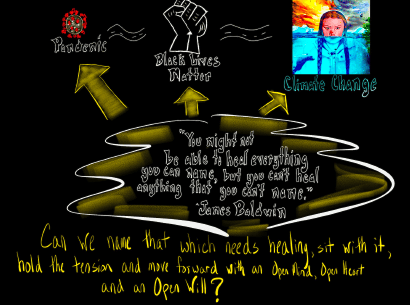 Pandemic
Black Lives
Matter
Climate Change
"You might not
be able to heal everything
you can name, but you can't heal
anything that you can't name."
- James Baldwin
Can we name that which needs healing, sit with it,
hold the tension and move forward with an Open Mind, Open Heart
and an Open Will?